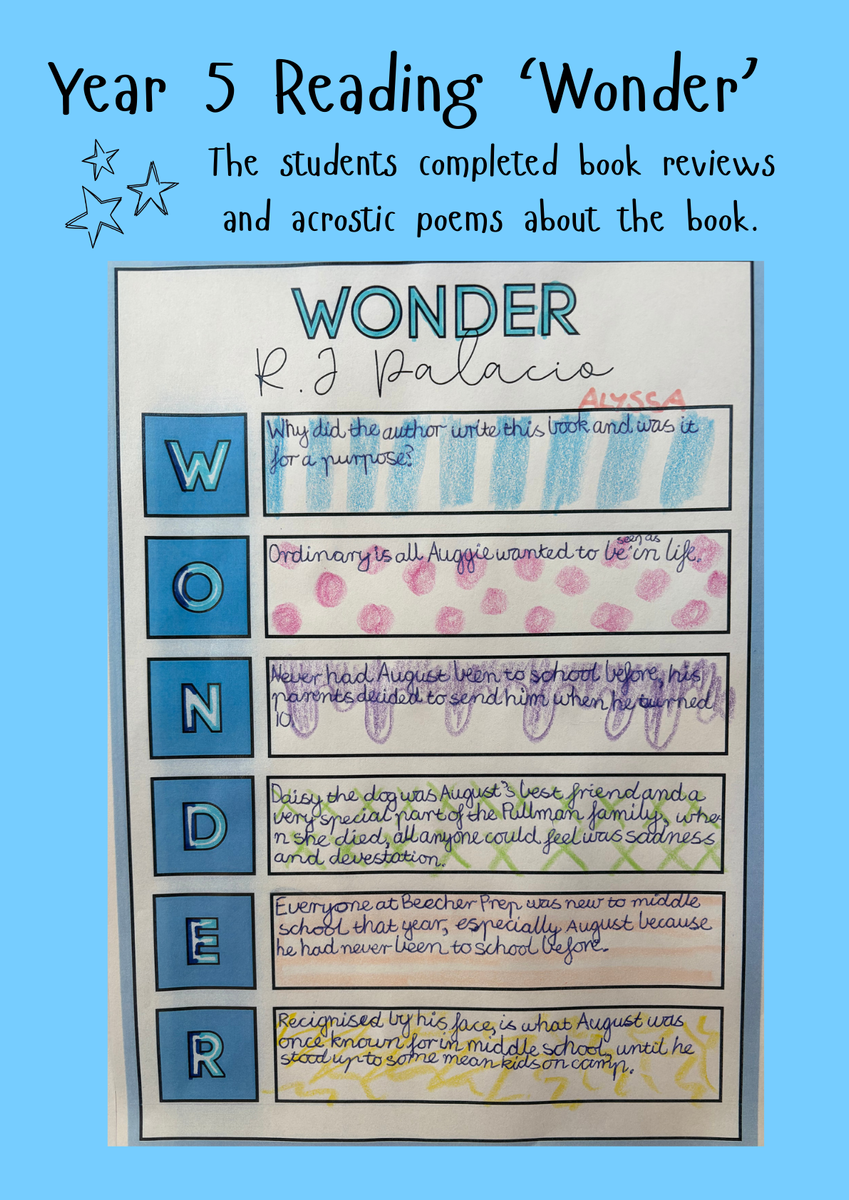 Year 5 Reading 'Wonder'
The students completed book reviews
and acrostic poems about the book.
WONDER
R.J Palacio
ALYSSA
W
Why did the author write this book and was it
for a purpose?
O
seen as
Ordinary is all Auggie wanted to be in life.
N
Never had August been to school before, his
parents decided to send him when he turned
10.
D
Daisy the dog was August's best friend and a
very special part of the Pullman family, whe
n she died, all anyone could feel was sadness
and devestation.
E
Everyone at Beecher Prep was new to middle
school that year, especially August because
he had never been to school before.
R
Recognised by his face, is what August was
once known for in middle school, until he
stood up to some mean kids on camp.